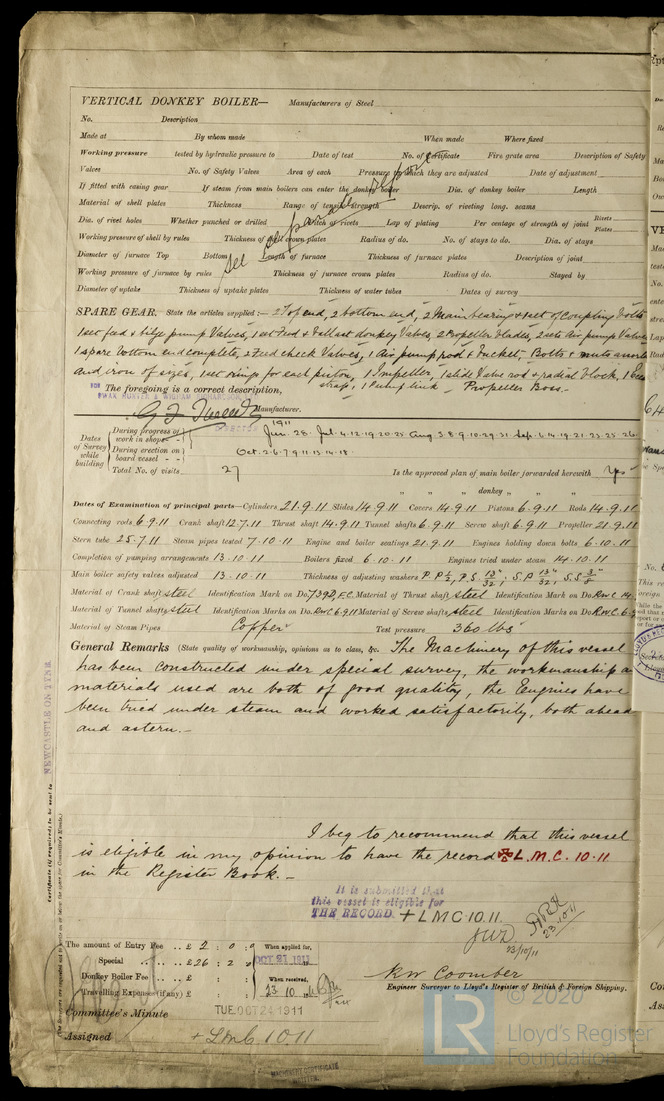 VERTICAL DONKEY BOILER— Manufacturers of Steel
No. Description
Made at By whom made When made Where fixed
Working pressure tested by hydraulic pressure to Date of test No. of Certificate Fire grate area Description of Safety
Valves No. of Safety Valves Area of each Pressure to which they are adjusted Date of adjustment
If fitted with easing gear If steam from main boilers can enter the donkey boiler Dia. of donkey boiler Length
Material of shell plates Thickness Range of tensile strength Descrip. of riveting long. seams
Dia. of rivet holes Whether punched or drilled Pitch of rivets Lap of plating Per centage of strength of joint Rivets Plates
Working pressure of shell by rules Thickness of shell crown plates Radius of do. No. of stays to do. Dia. of stays
Diameter of furnace Top Bottom Length of furnace Thickness of furnace plates Description of joint
Working pressure of furnace by rules Thickness of furnace crown plates Radius of do. Stayed by
Diameter of uptake Thickness of uptake plates Thickness of water tubes Dates of survey
See separate report
SPARE GEAR. State the articles supplied:— 2 Top end, 2 bottom end, 2 Main bearing & 1 set of Coupling bolts
1 set feed & bilge pump Valves, 1 set Feed & ballast donkey Valves, 2 Propeller blades, 2 sets Air pump Valves
1 spare bottom end complete, 2 Feed check Valves, 1 Air pump rod & bucket, Bolts & nuts assorted
and iron of sizes, 1 set rings for each piston, 1 Impeller, 1 slide Valve rod & radial block, 1 Ecc
strap, 1 Pump link - Propeller Boss.-
The foregoing is a correct description,
FOR SWAN HUNTER & WIGHAM RICHARDSON
Manufacturer.
DIRECTOR
Dates of Survey while building
During progress of work in shops - - 1911 Jun. 28. Jul. 4.12.19.20.25 Aug. 3.8.9.10.29.31 Sep. 6.14.19.21.23.25.26
During erection on board vessel - - Oct. 2.6.7.9.11.13.14.18
Total No. of visits 27 Is the approved plan of main boiler forwarded herewith Yes
" " " donkey " " "
Dates of Examination of principal parts—Cylinders 21.9.11 Slides 14.9.11 Covers 14.9.11 Pistons 6.9.11 Rods 14.9.11
Connecting rods 6.9.11 Crank shaft 12.7.11 Thrust shaft 14.9.11 Tunnel shafts 6.9.11 Screw shaft 6.9.11 Propeller 21.9.11
Stern tube 25.7.11 Steam pipes tested 7.10.11 Engine and boiler seatings 21.9.11 Engines holding down bolts 6.10.11
Completion of pumping arrangements 13.10.11 Boilers fixed 6.10.11 Engines tried under steam 14.10.11
Main boiler safety valves adjusted 13.10.11 Thickness of adjusting washers
Material of Crank shaft steel Identification Mark on Do. 739D, F.C. Material of Thrust shaft steel Identification Mark on Do. RWC 14.
Material of Tunnel shafts steel Identification Marks on Do. RWC 6.9.11 Material of Screw shafts steel Identification Marks on Do. RWC 6.9
Material of Steam Pipes Copper Test pressure 360 lbs
General Remarks (State quality of workmanship, opinions as to class, &c. The Machinery of this vessel
has been constructed under special survey, the workmanship &
materials used are both of good quality, the Engines have
been tried under steam and worked satisfactorily, both ahead
and astern.-
I beg to recommend that this vessel
is eligible in my opinion to have the record ✠ L.M.C. 10.11
in the Register Book.-
It is submitted that
this vessel is eligible for
THE RECORD. + LMC 10.11.
23.10.11
23/10/11
The amount of Entry Fee .. £ 2 : 0 : When applied for,
Special .. £ 26 : 2 : OCT 21 1911
Donkey Boiler Fee .. £ : : When received,
Travelling Expenses (if any) £ : : 23.10.11
RW Coomber
Engineer Surveyor to Lloyd's Register of British & Foreign Shipping.
Committee's Minute TUE. OCT 24 1911
Assigned + LMC. 10.11
MACHINERY CERTIFICATE WRITTEN.
NEWCASTLE ON TYNE
Certificate (if required) to be sent to
© 2020
LR
Lloyd's Register
Foundation